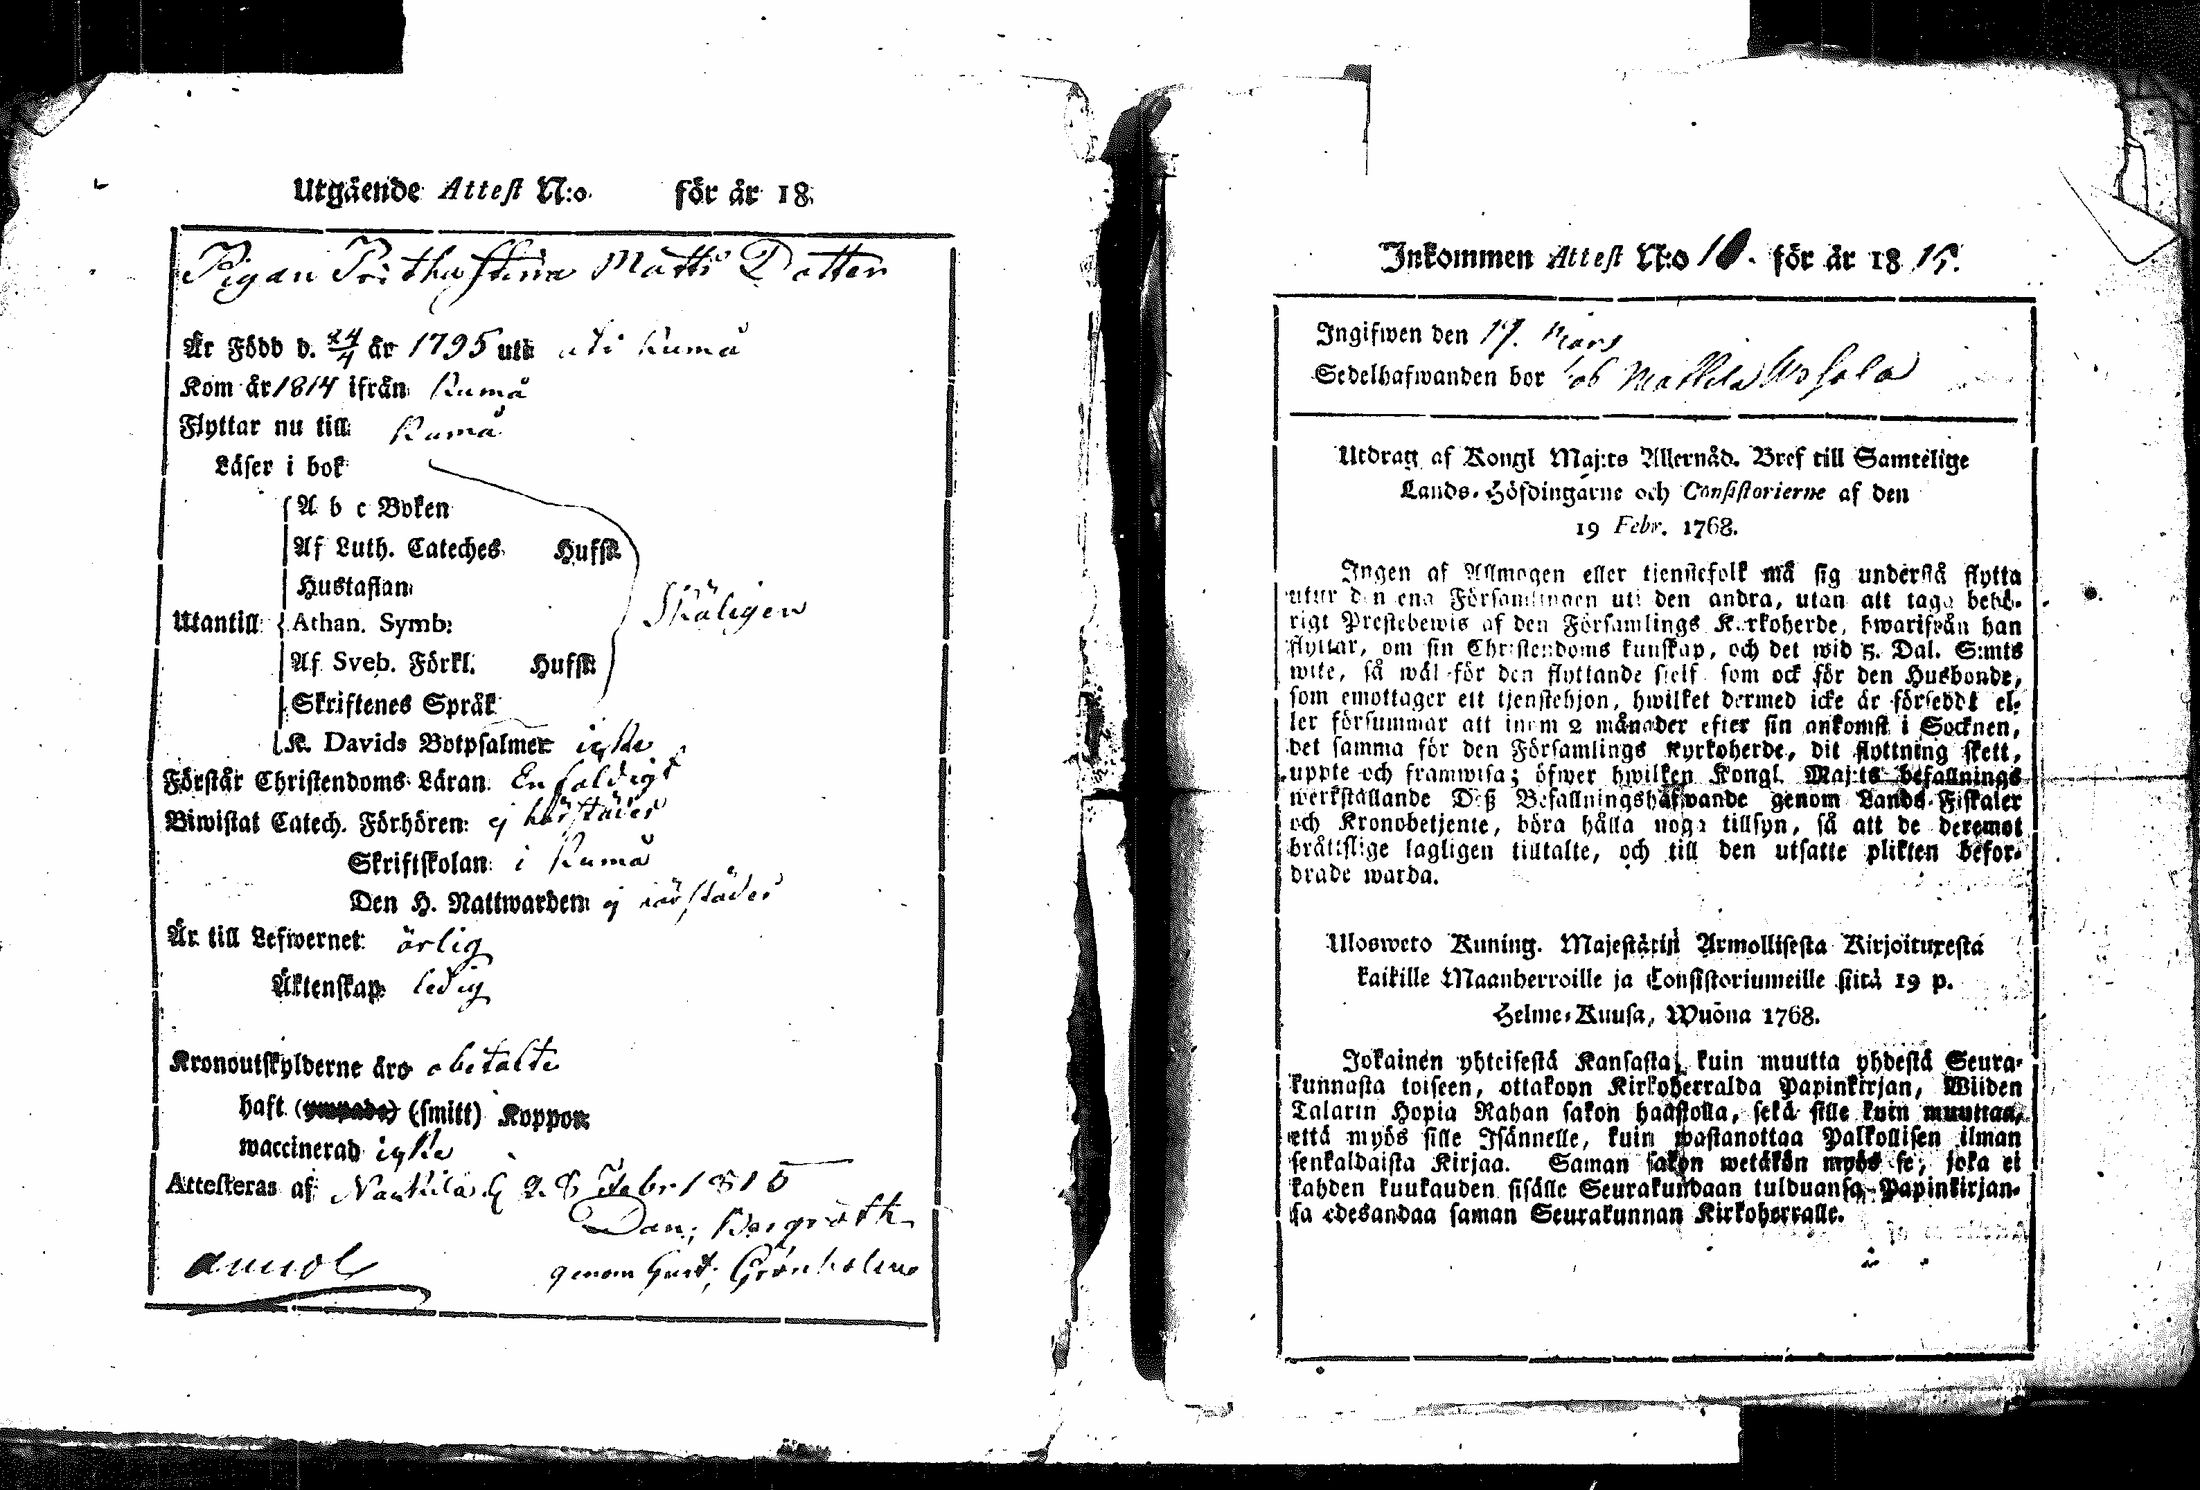 Utgående Attest N:o för år 18
Pigan Stina Matts Dotter
Är Född d. 24/4 år 1795 uti Kumå
Kom år 1814 ifrån Kumå
Flyttar nu till Kumå
Läser i bok
A b c Boken
Af Luth. Cateches Hufsk
Hustaflan
Skäligen
Utantill Athan. Symb:
Af Sveb. Förkl. Hufsk
Skriftenes Språk
K. Davids Botpsalmer icke
Förstår Christendoms Läran Enfaldigt
Biwistat Catech. Förhören: ej härstädes
Skriftskolan i Kumå
Den H. Nattwarden ej härstädes
Är till Lefwernet ärlig
Äktenskap ledig
Kronoutskylderne äro obetalte
haft (ympade) (smitt) Koppor
waccinerad icke
Attesteras af Nackila d 28 Febr 1815
Dan; Bergroth
genom Gust; Grönholm
Inkommen Attest N:o 10. för år 1815.
Ingifwen den 19. Mars
Sedelhafwanden bor Mattila
Utdrag af Kongl Maj:ts Allernåd. Bref till Samtelige
Lands-Höfdingarne och Consistorierne af den
19 Febr. 1768.
Ingen af Allmogen eller tienstefolk må sig understå flytta
utur den ena Församlingen uti den andra, utan att taga behö-
rigt Prestebewis af den Församlings Kyrkoherde, hwarifrån han
flyttar, om sin Christendoms kunskap, och det wid 5. Dal. S:mts
wite, så wäl för den flyttande sjelf som ock för den Husbonde,
som emottager ett tjenstehjon, hwilket dermed icke är förseddt el-
ler försummar att inom 2 månader efter sin ankomst i Socknen,
det samma för den Församlings Kyrkoherde, dit flyttning skett,
uppte och framwisa; öfwer hwilken Kongl. Maj:ts befallnings
werkställande Deß Befallningshafwande genom Lands-Fiskaler
och Kronobetjente, böra hålla noga tillsyn, så att de deremot
bråttslige lagligen tilltalte, och till den utsatte plikten befor-
drade warda.
Ulosweto Kuning. Majestätin Armollisesta Kirjoituxesta
kaikille Maanherroille ja Consistoriumeille siitä 19 p.
Helme-Kuusa, Wuona 1768.
Jokainen yhteisestä Kansasta, kuin muutta yhdestä Seura-
kunnasta toiseen, ottakoon Kirkoherralda Papinkirjan, Wiiden
Talarin Hopia Rahan sakon haastolla, sekä sille kuin muuttaa,
että myös sille Isännelle, kuin wastanottaa Palkollisen ilman
senkaldaista Kirjaa. Saman sakon wetäkön myös se, joka ei
kahden kuukauden sisälle Seurakundaan tulduansa, Papinkirjan-
sa edesandaa saman Seurakunnan Kirkoherralle.